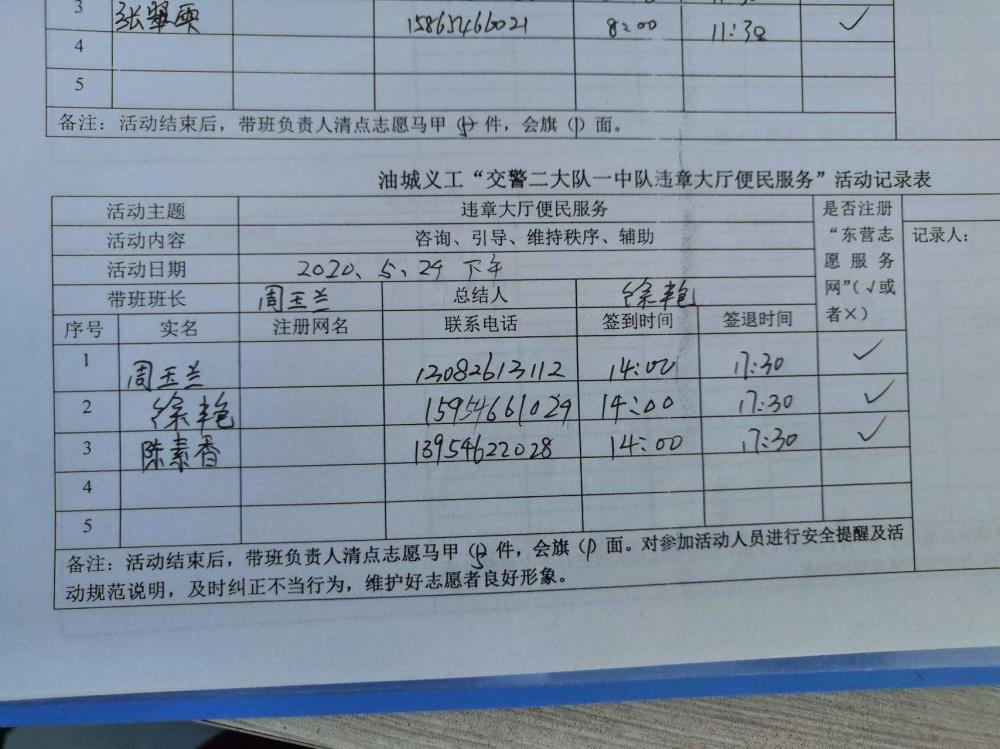 3 张翠 15865466021 8:00 11:30 ✓
4
5
备注：活动结束后，带班负责人清点志愿马甲（5）件，会旗（1）面。
油城义工“交警二大队一中队违章大厅便民服务”活动记录表
活动主题 违章大厅便民服务 是否注册“东营志愿服务网”（√或者×）
活动内容 咨询、引导、维持秩序、辅助 记录人：
活动日期 2020、5、29 下午
带班班长 周玉兰 总结人 徐艳
序号 实名 注册网名 联系电话 签到时间 签退时间
1 周玉兰 13082613112 14:00 17:30 ✓
2 徐艳 15954661029 14:00 17:30 ✓
3 陈素香 13954622028 14:00 17:30 ✓
4
5
备注：活动结束后，带班负责人清点志愿马甲（5）件，会旗（1）面。对参加活动人员进行安全提醒及活
动规范说明，及时纠正不当行为，维护好志愿者良好形象。